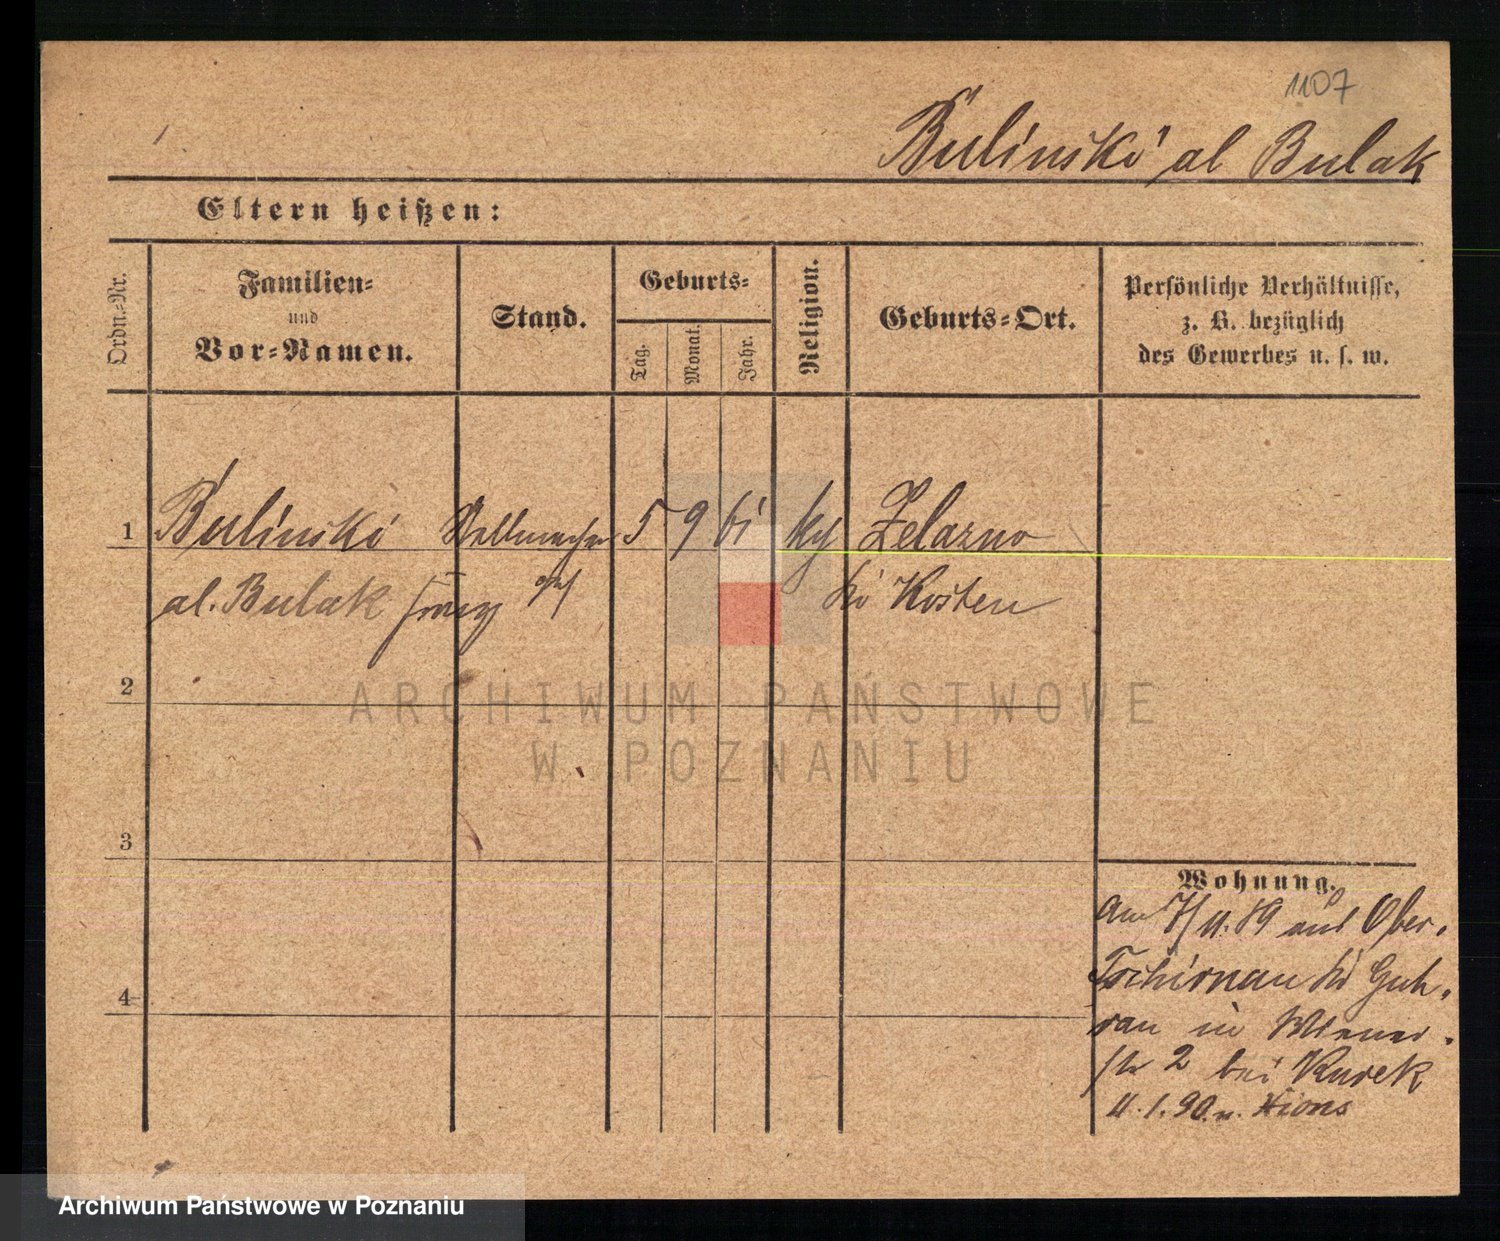 1107
Bulinski al Bulak
Eltern heißen:
Ordn.-Nr.
Familien-
und
Vor-Namen.
Stand.
Geburts-
Tag.
Monat.
Jahr.
Religion.
Geburts-Ort.
Persönliche Verhältnisse,
z. B. bezüglich
des Gewerbes u. s. w.
1 Bulinski Stellmacher 5 9 61 kth Zelazno
al. Bulak Franz ges Kr Kosten
2
ARCHIWUM PAŃSTWOWE
W POZNANIU
3
Wohnung.
am 7/11.89 aus Ober-
Tschirnau Kr Guh-
rau in Wiener-
str 2 bei Kurek
11.1.90. n. Xions
4
Archiwum Państwowe w Poznaniu